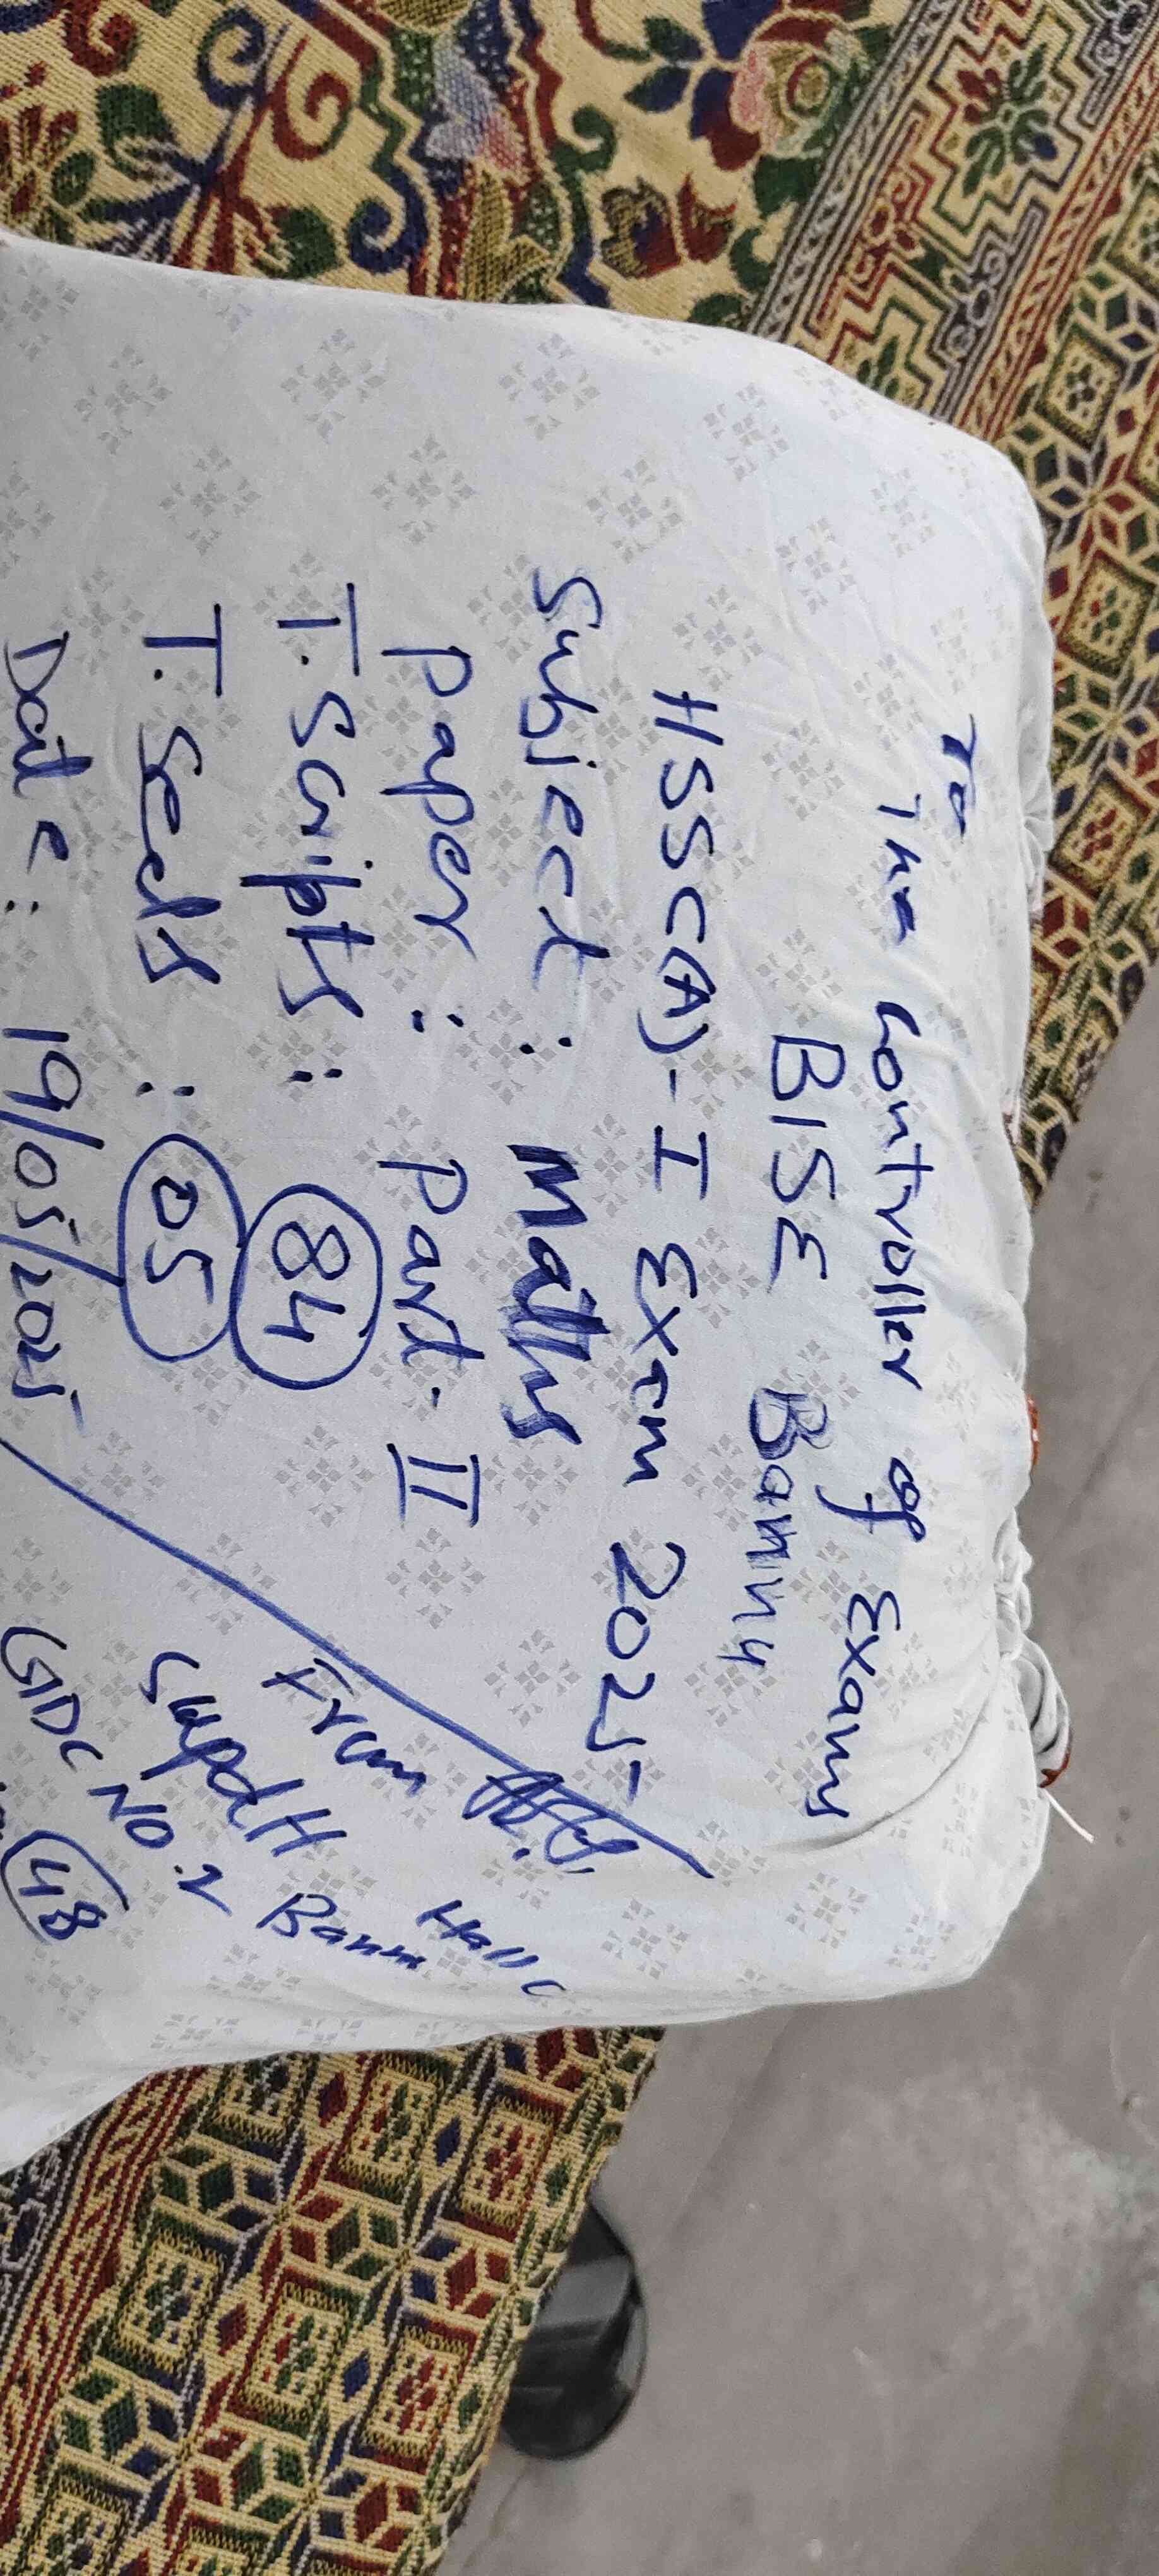 To
The Controller of Exams
BISE Bannu
HSSC(A)-I Exam 2025
Subject : Maths
Paper : Part-II
T. Scripts : 84
T. Seals : 05
Date : 19/05/2025
From
Supdt Hall
GDC NO.2 Bannu
48